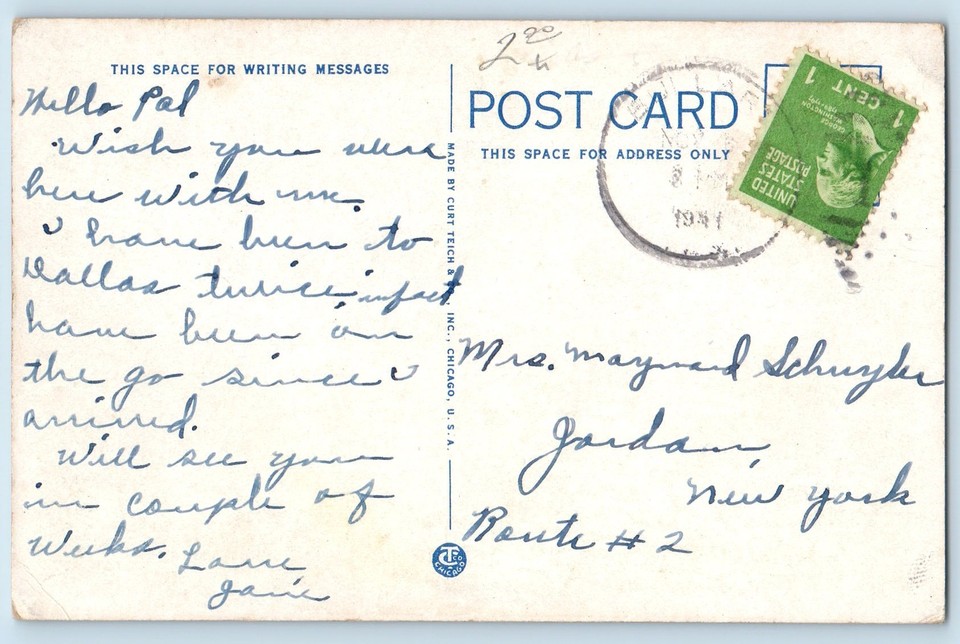 THIS SPACE FOR WRITING MESSAGES
Hello Pal
Wish you were
here with me.
I have been to
Dallas twice, infact
have been on
the go since I
arrived.
Will see you
in couple of
Weeks.
Love
Janie
MADE BY CURT TEICH & CO., INC., CHICAGO, U.S.A.
CTCO
CHICAGO
2 00
POST CARD
THIS SPACE FOR ADDRESS ONLY
1941
UNITED
STATES
POSTAGE
GEORGE
WASHINGTON
1789-1797
1
CENT
1
Mrs. Maynard Schuyler
Jordan,
New York
Route # 2